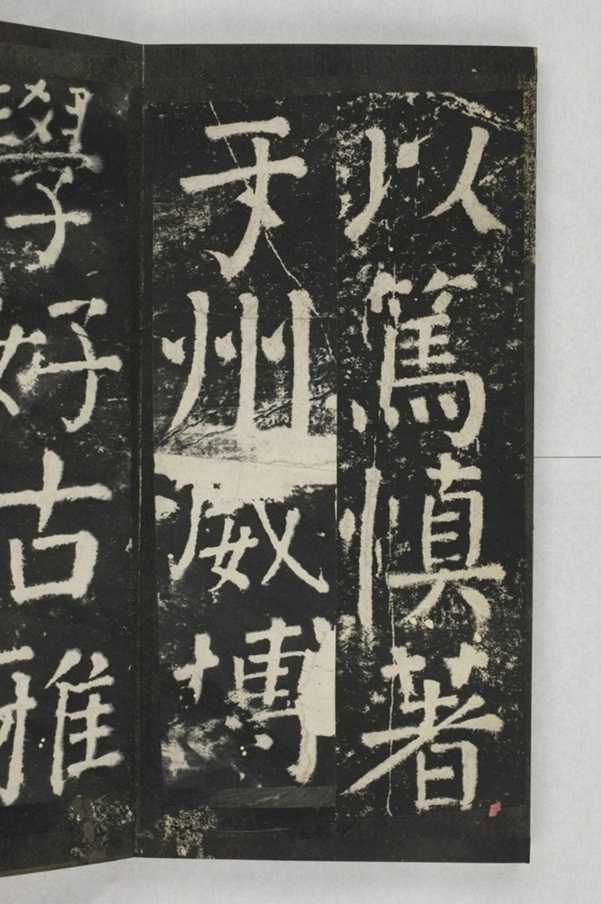 以篤慎著
于州威博
學好古雅